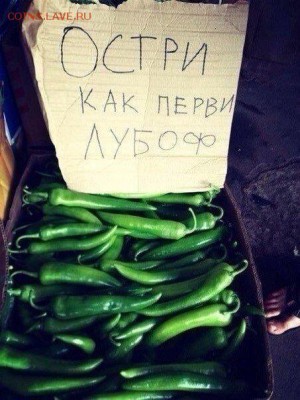 COINS.LAVE.RU
ОСТРИ
КАК ПЕРВИ
ЛУБОФ